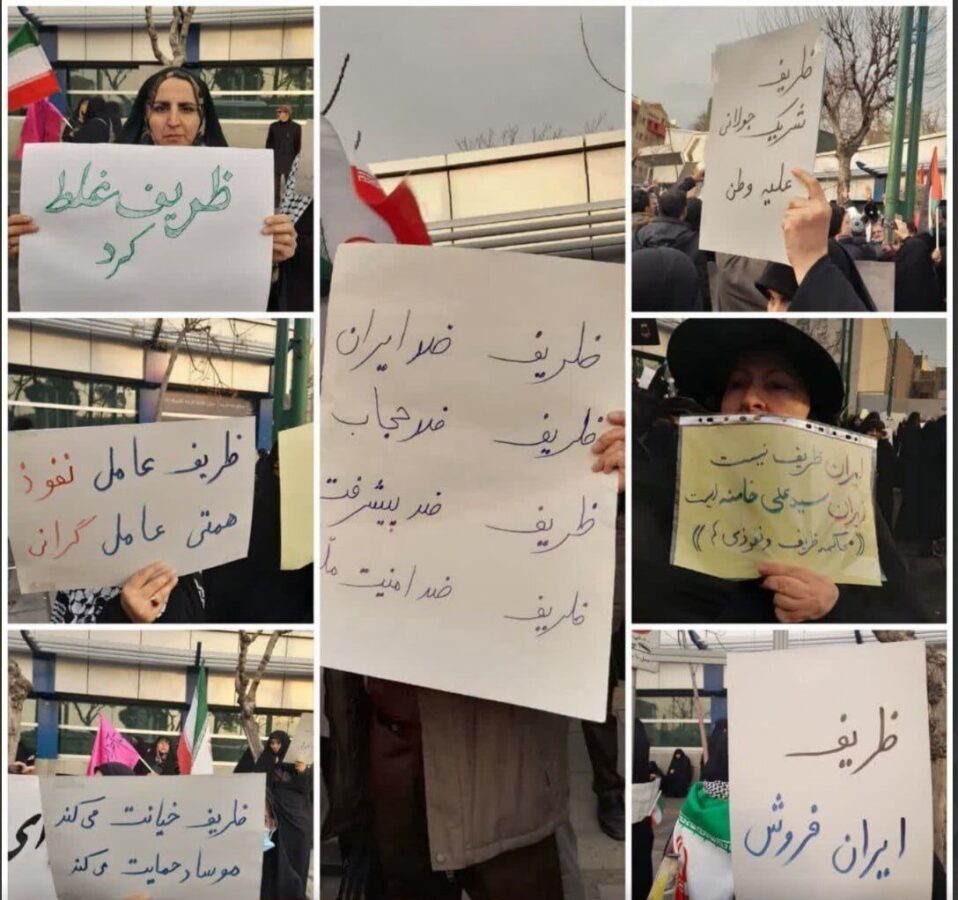 ظریف غلط
کرد
ظریف ضد ایران
ظریف ضد حجاب
ظریف ضد پیشرفت
ظریف ضد امنیت
ظریف
شریک جولانی
علیه وطن
ظریف عامل نفوذ
همتی عامل گرانی
ایران ظریف نیست
ایران سید علی خامنه ایست
((محاکمه ظریف و نفوذی ها))
ظریف خیانت می‌کند
موساد حمایت می‌کند
ظریف
ایران فروش